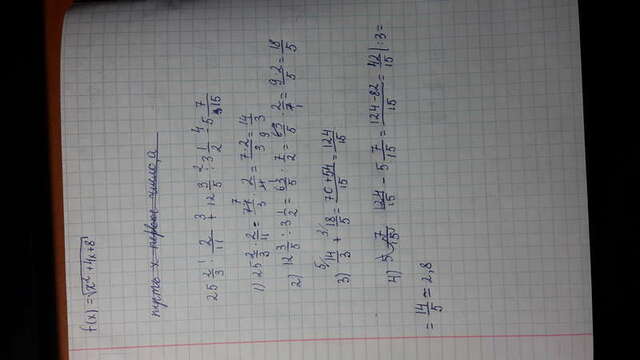 f(x) = √x² + 4x + 8
пусть x первое число, а
25 2/3 · 2/11 + 12 3/5 : 3 1/2 - 5 7/15
1) 25 2/3 · 2/11 = 77/3 · 2/11 = 7·2/3 = 14/3
2) 12 3/5 : 3 1/2 = 63/5 : 7/2 = 63/5 · 2/7 = 9·2/5 = 18/5
3) 14/3 + 18/5 = 70+54/15 = 124/15
4) 5 7/15 124/15 - 5 7/15 = 124-82/15 = 42/15 | :3 =
= 14/5 = 2,8